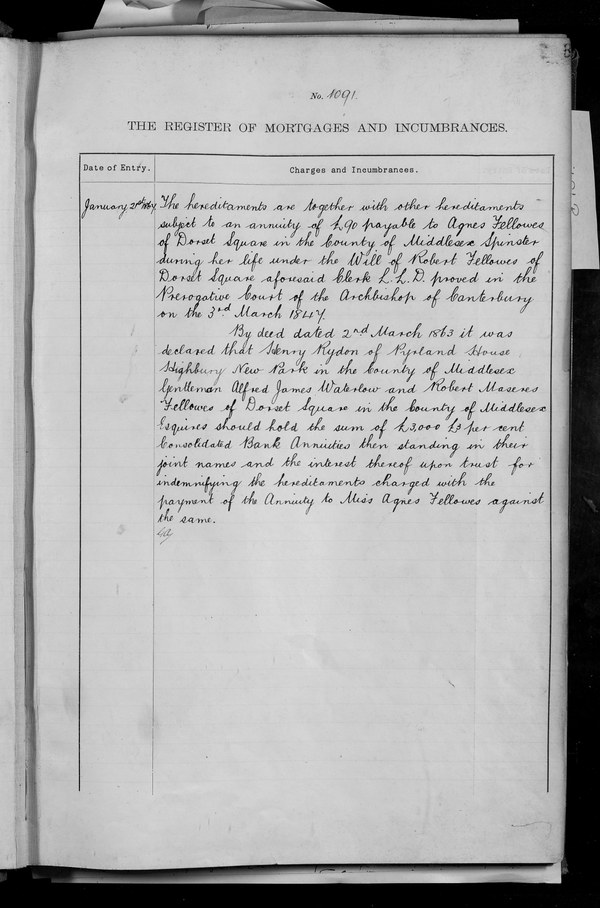 No. 1091.
THE REGISTER OF MORTGAGES AND INCUMBRANCES.
Date of Entry.
Charges and Incumbrances.
January 21st
The hereditaments are together with other hereditaments
subject to an annuity of £90 payable to Agnes Fellowes
of Dorset Square in the County of Middlesex Spinster
during her life under the Will of Robert Fellowes of
Dorset Square aforesaid Clerk L.L.D. proved in the
Prerogative Court of the Archbishop of Canterbury
on the 3rd March 1847.
By deed dated 2nd March 1863 it was
declared that Henry Rydon of Pyrland House
Highbury New Park in the County of Middlesex
Gentleman Alfred James Waterlow and Robert Maseres
Fellowes of Dorset Square in the County of Middlesex
Esquires should hold the sum of £3,000 £3 per cent
Consolidated Bank Annuities then standing in their
joint names and the interest thereof upon trust for
indemnifying the hereditaments charged with the
payment of the Annuity to Miss Agnes Fellowes against
the same.